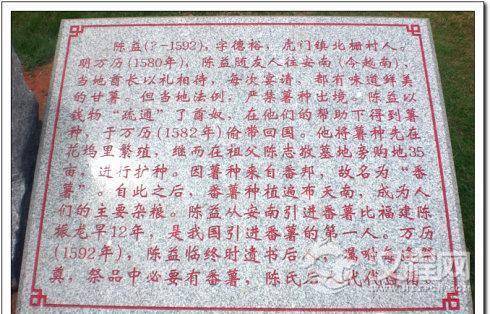 陈益(?-1592)，字德裕，虎门镇北栅村人。
明万历(1580年)，陈益随友人往安南(今越南)，
当地酋长以礼相待，每次宴请，都有味道鲜美
的甘薯。但当地法例，严禁薯种出境。陈益以
钱物“疏通”了酋奴，在他们的帮助下得到薯
种，于万历(1582年)偷带回国。他将薯种先在
花坞里繁殖，继而在祖父陈志敬墓地旁购地35
亩，进行扩种。因薯种来自番邦，故名为“番
薯”。自此之后，番薯种植遍布天南，成为人
们的主要杂粮。陈益从安南引进番薯比福建陈
振龙早12年，是我国引进番薯的第一人。万历
(1592年)，陈益临终时遗书后人，嘱咐每逢祭
奠，祭品中必要有番薯，陈氏后 代代